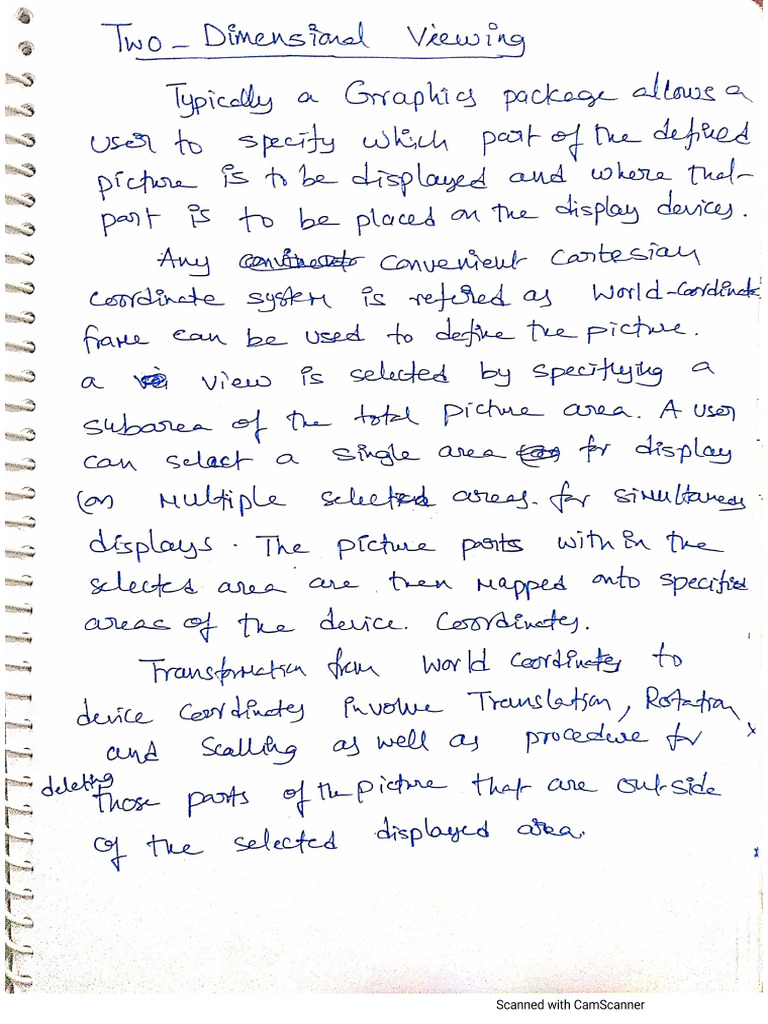 Two-Dimensional Viewing
Typically a Graphics package allows a
user to specify which part of the defined
picture is to be displayed and where that
part is to be placed on the display devices.
Any convenient Cartesian
coordinate system is refered as World-coordinate
frame can be used to define the picture.
a view is selected by specifying a
subarea of the total picture area. A user
can select a single area for display
(or) Multiple selected areas. for simultaneous
displays. The picture parts within the
selected area are then mapped onto specified
areas of the device. Coordinates.
Transformation from World coordinates to
device coordinates involve Translation, Rotation
and Scalling as well as procedure for
deleting
those parts of the picture that are out-side
of the selected displayed area.
Scanned with CamScanner